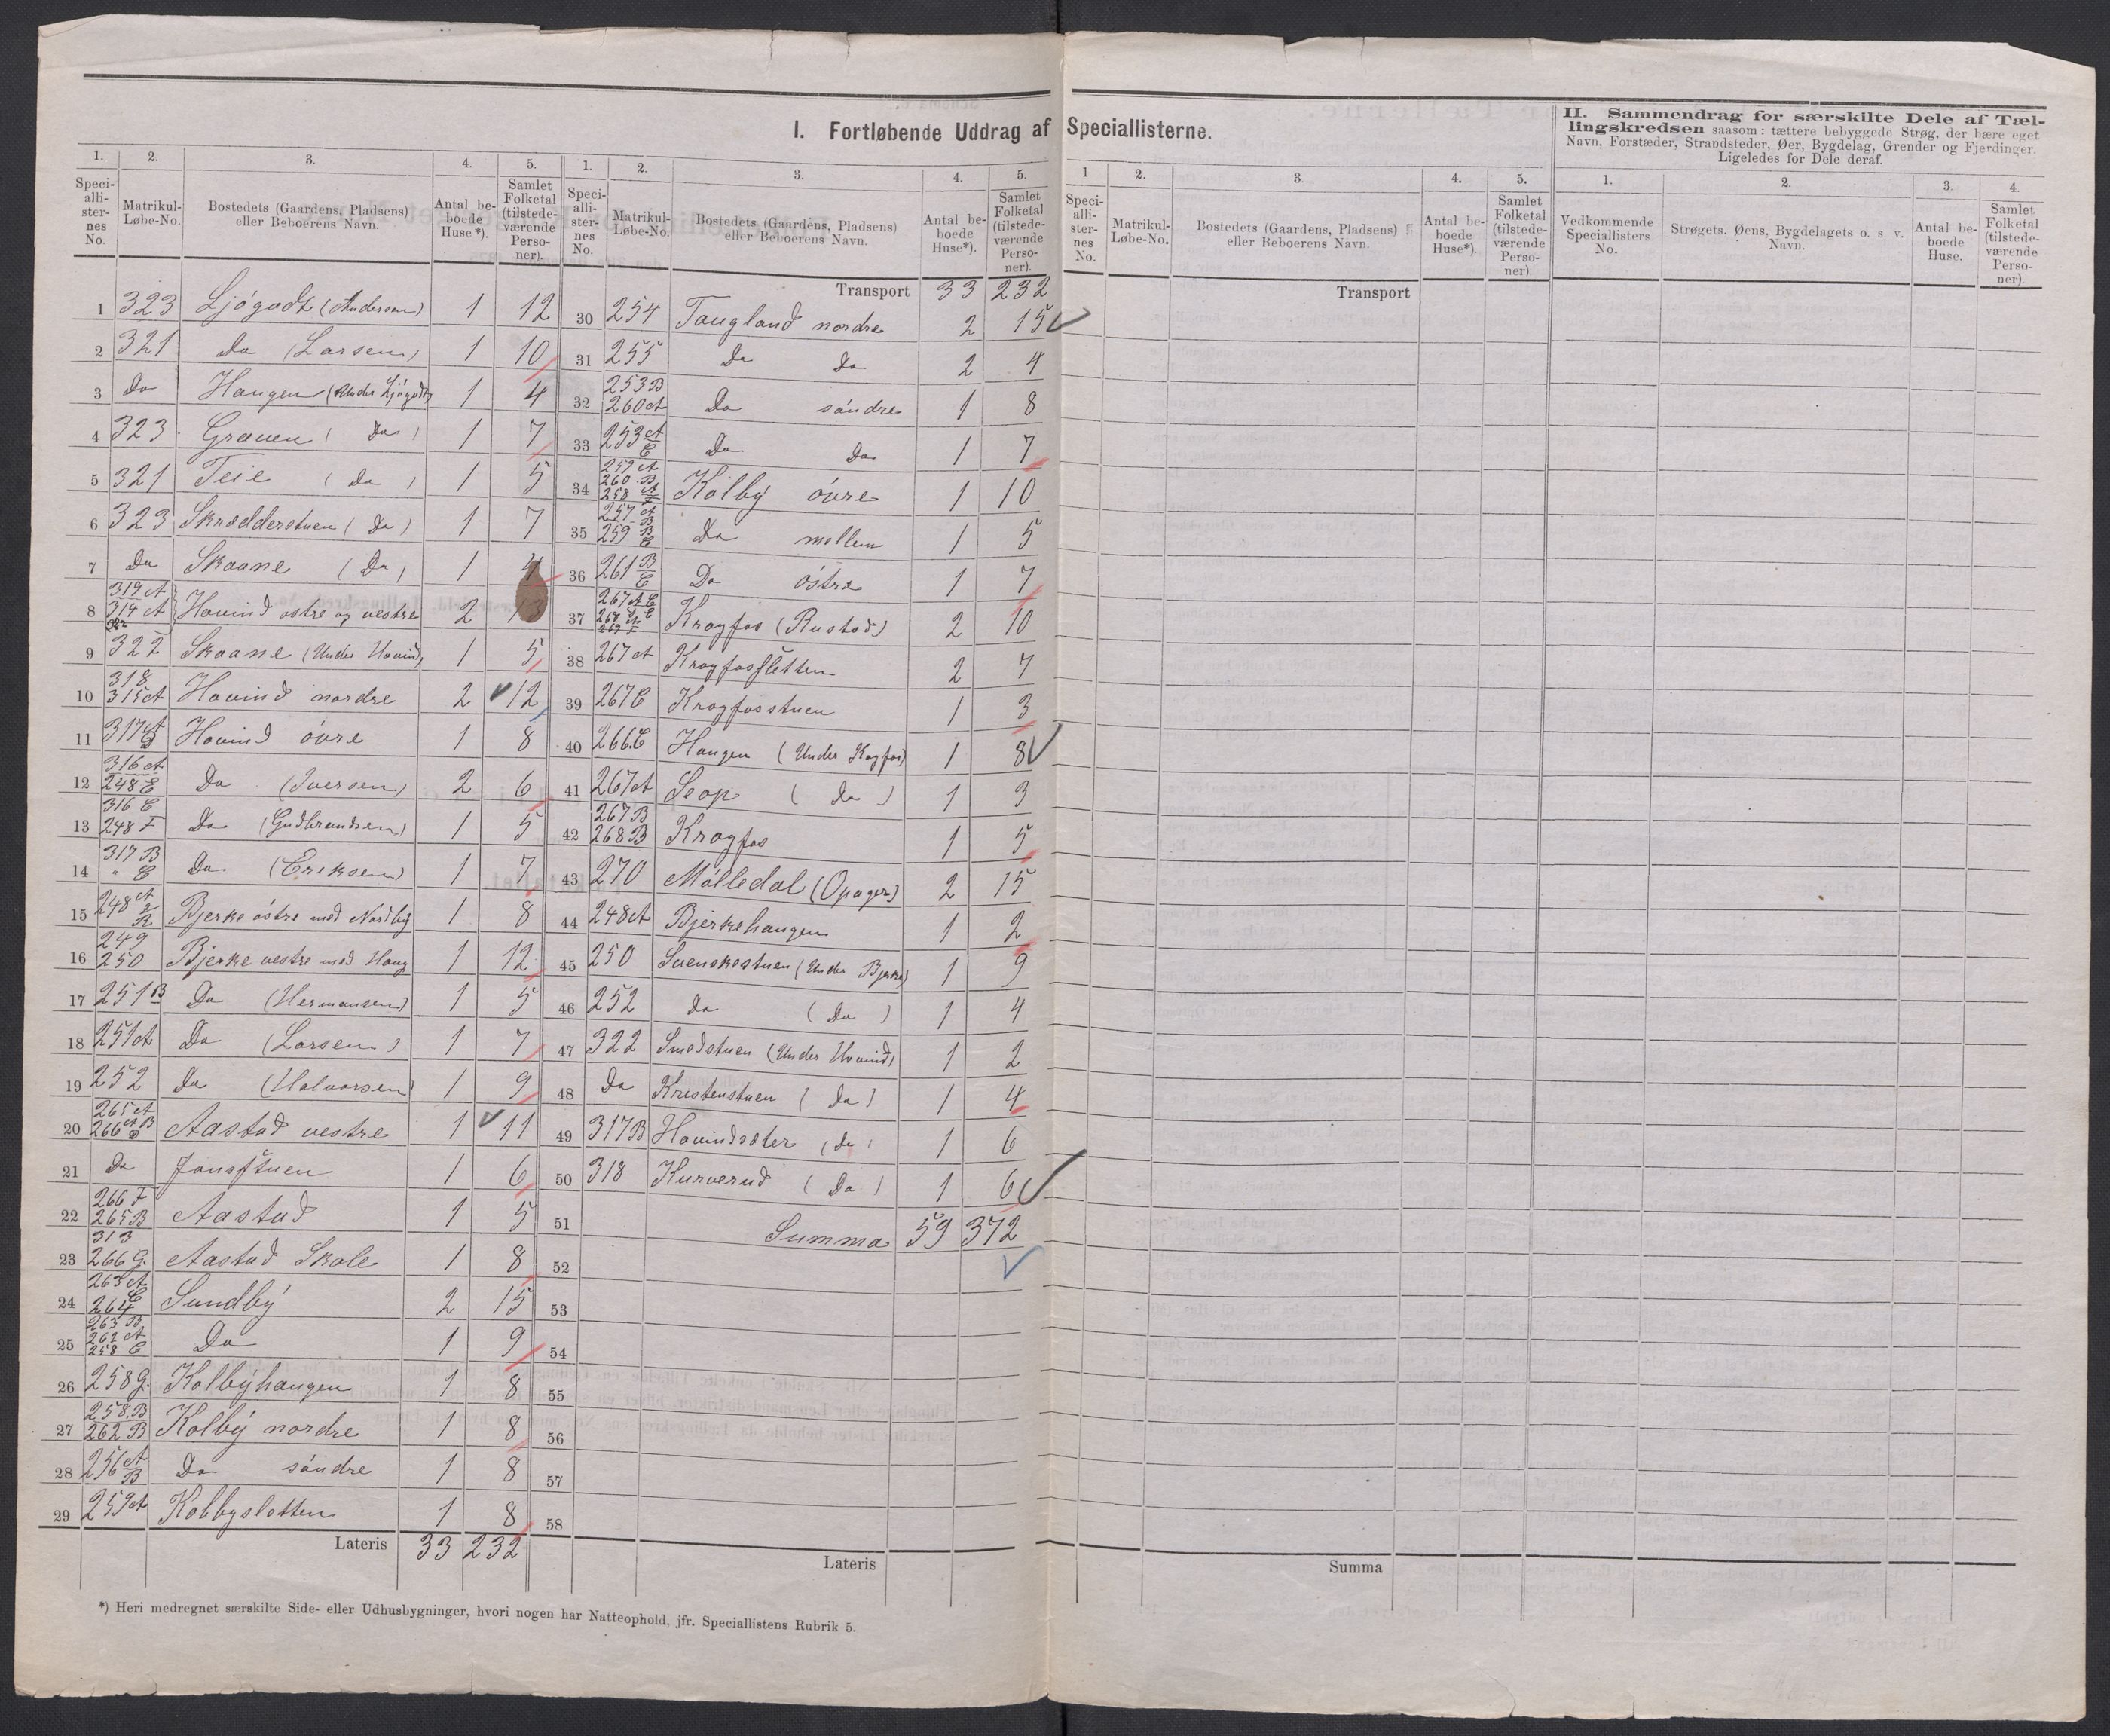 I. Fortløbende Uddrag af Speciallisterne.
1. 2. 3. 4. 5.
Speciallisternes No. Matrikul-Løbe-No. Bostedets (Gaardens, Pladsens) eller Beboerens Navn. Antal beboede Huse*). Samlet Folketal (tilstedeværende Personer).
1 323 Ljøgodt (Andersen) 1 12
2 321 Do (Larsen) 1 10
3 Do Haugen (Under Ljøgodt) 1 4
4 323 Grauen (Do) 1 7
5 321 Teie (Do) 1 5
6 323 Skrædderstuen (Do) 1 7
7 Do Skaane (Do) 1 4
8 319A 314A Hovind østre og vestre 2 13
9 322 Skaane (Under Hovind) 1 5
10 318 315A Hovind nordre 2 12
11 317 Hovind øvre 1 8
12 316A 248E Do (Iversen) 2 6
13 316C 248F Do (Gudbrandsen) 1 5
14 317B " C Do (Eriksen) 1 7
15 248 Bjerke østre med Nordby 1 8
16 249 250 Bjerke vestre med Haug 1 12
17 251B Do (Hermansen) 1 5
18 251A Do (Larsen) 1 7
19 252 Do (Halvorsen) 1 9
20 265A 266 Aastad vestre 1 11
21 Do Jonsstuen 1 6
22 266F 265B Aastad 1 5
23 313 266G. Aastad Skole 1 8
24 263A 264C Sundby 2 15
25 263B 262A 258C Do 1 9
26 258G. Kolbyhaugen 1 8
27 258B 262B Kolby nordre 1 8
28 256A B Do søndre 1 8
29 259A Kolbysletten 1 8
Lateris 33 232
1. 2. 3. 4. 5.
Speciallisternes No. Matrikul-Løbe-No. Bostedets (Gaardens, Pladsens) eller Beboerens Navn. Antal beboede Huse*). Samlet Folketal (tilstedeværende Personer).
Transport 33 232
30 254 Taugland nordre 2 15
31 255 Do Do 2 4
32 253B 260A Do søndre 1 8
33 253A C Do Do 1 7
34 259A 260B 258 Kolby øvre 1 10
35 257A B 259B C Do mellem 1 5
36 261B C Do østre 1 7
37 267 Krogfos (Rustad) 2 10
38 267A Krogfossletten 2 7
39 267C Krogfosstuen 1 3
40 266E Haugen (Under Kogfos) 1 8
41 267A Seop (Do) 1 3
42 267B 268B Krogfos 1 5
43 270 Mölledal (Opager) 2 15
44 248A Bjerkehaugen 1 2
45 250 Svenskestuen (Under Bjerke) 1 9
46 252 Do (Do) 1 4
47 322 Smedstuen (Under Hovind) 1 2
48 Do Kristenstuen (Do) 1 4
49 317B Hovindsæter (Do) 1 6
50 318 Kurverud (Do) 1 6
51 Summa 59 372
52
53
54
55
56
57
58
Lateris
1 2. 3. 4. 5.
Speciallisternes No. Matrikul-Løbe-No. Bostedets (Gaardens, Pladsens) eller Beboerens Navn. Antal beboede Huse*). Samlet Folketal (tilstedeværende Personer).
Transport
Summa
II. Sammendrag for særskilte Dele af Tællingskredsen saasom: tættere bebyggede Strøg, der bære eget
Navn, Forstæder, Strandsteder, Øer, Bygdelag, Grender og Fjerdinger.
Ligeledes for Dele deraf.
1. 2. 3. 4.
Vedkommende Speciallisters No. Strøgets, Øens, Bygdelagets o. s. v. Navn. Antal beboede Huse. Samlet Folketal (tilstedeværende Personer).
*) Heri medregnet særskilte Side- eller Udhusbygninger, hvori nogen har Natteophold, jfr. Speciallistens Rubrik 5.